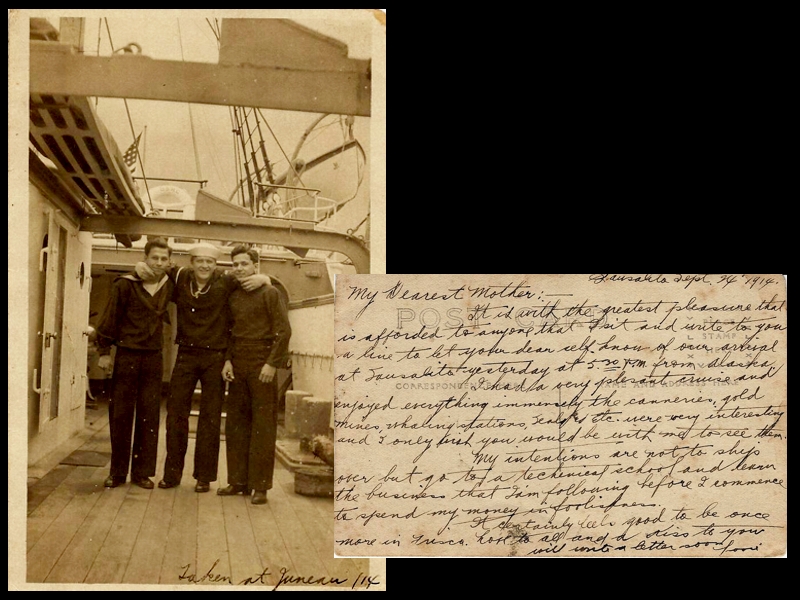 Taken at Juneau /14
Sausalito Sept. 24 1914.
My Dearest Mother:—
POST
It is with the greatest pleasure that
is afforded to anyone that I sit and write to you
a line to let your dear self know of our arrival
at Sausalito yesterday at 5:30 P.M. from Alaska
STAMP
CORRESPONDENCE
I had a very plesant cruise and
enjoyed everything immensely the canneries, gold
mines, whaling stations, etc. were very interesting
and I only wish you would be with me to see them.
My intentions are not to ship
over but go to a technical school and learn
the business that I am following before I commence
to spend my money in foolishness.
It certainly feels good to be once
more in Frisco. love to all and a kiss to you
will write a letter soon